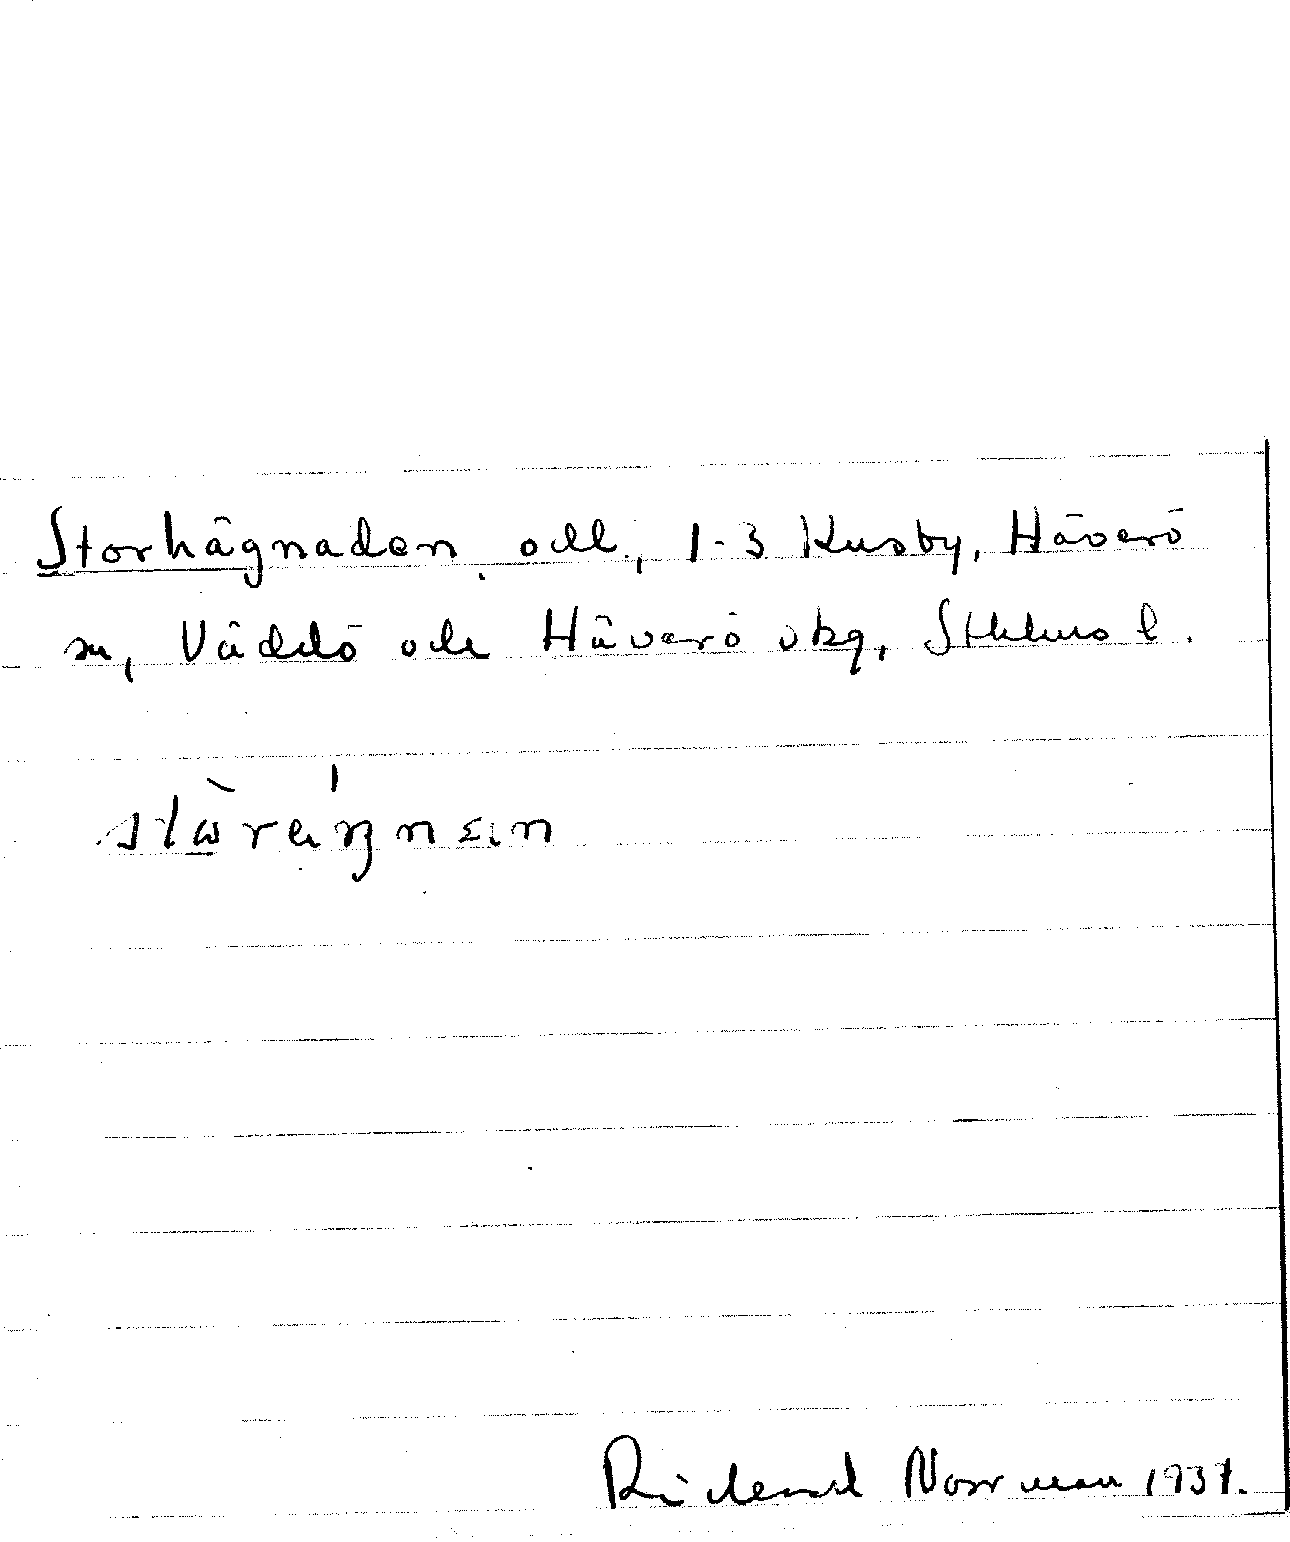 Storhägnaden, odl., 1-3 Kusby, Häverö
sn, Väddö och Häverö skg, Sthlms l.
Rickard Norrman 1937.